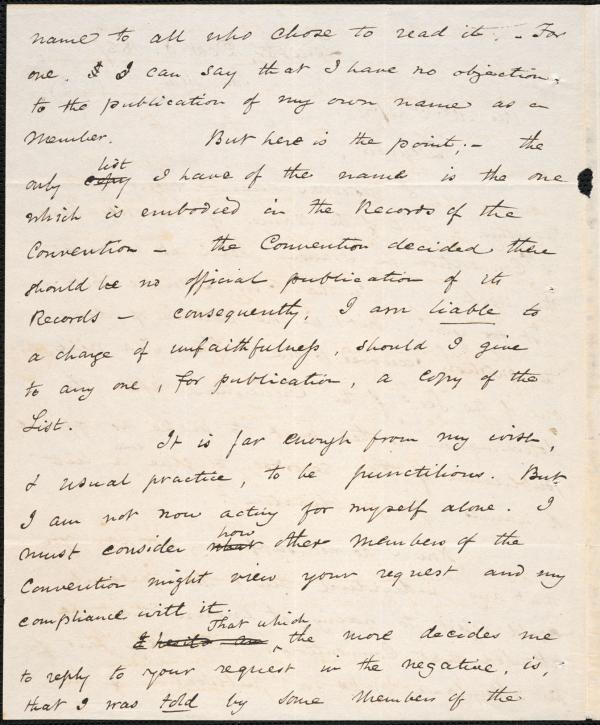 name to all who chose to read it. - For
one, I I can say that I have no objection,
to the publication of my own name as a
Member. But here is the point; - the
list
only copy I have of the name is the one
which is embodied in the Records of the
Convention - the Convention decided there
should be no official publication of its
Records - consequently, I am liable to
a charge of unfaithfulness, should I give
to any one, for publication, a copy of the
List.
It is far enough from my wish,
& usual practice, to be punctilious. But
I am not now acting for myself alone. I
how
must consider what other members of the
Convention might view your request and my
compliance with it.
That which
I hesitate ‸ the more decides me
to reply to your request in the negative, is,
that I was told by some Members of the